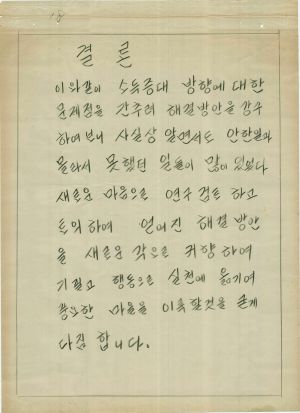 18
결론
이와같이 소득증대 방향에 대한
문제점을 간추려 해결방안을 강구
하여보니 사실상 알면서도 안한일과
몰라서 못했던 일들이 많이 있었다
새로운 마음으로 연구 검토 하고
토의하여 얻어진 해결 방안
을 새로운 각오로 귀향 하여
기필고 행동으로 실천에 옮기여
풍요한 마을을 이룩할것을 굳게
다짐 합니다.